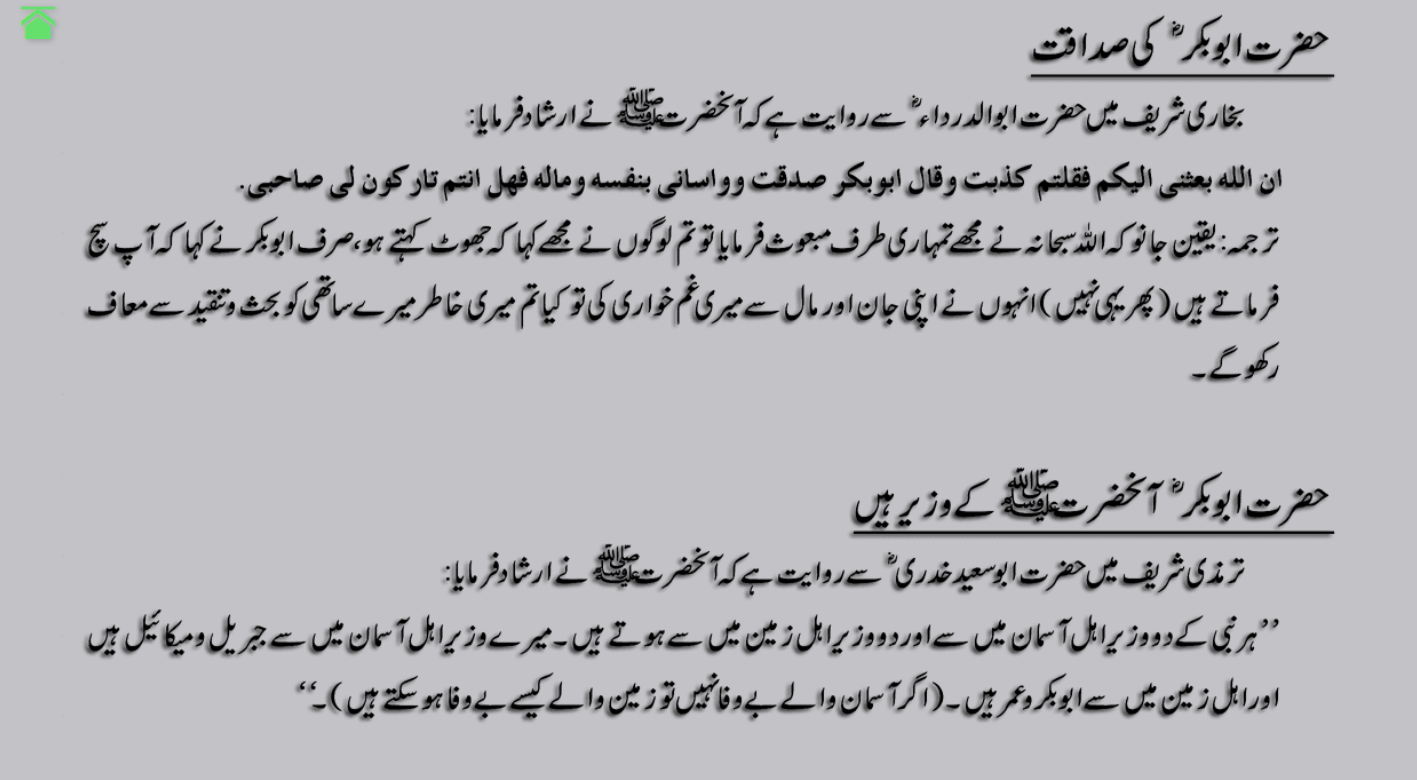 حضرت ابوبکرؓ کی صداقت
بخاری شریف میں حضرت ابوالدرداءؓ سے روایت ہے کہ آنحضرتﷺ نے ارشاد فرمایا:
ان الله بعثنی الیکم فقلتم کذبت وقال ابوبکر صدقت وواسانی بنفسه وماله فهل انتم تارکون لی صاحبی.
ترجمہ: یقین جانو کہ اللہ سبحانہ نے مجھے تمہاری طرف مبعوث فرمایا تو تم لوگوں نے مجھے کہا کہ جھوٹ کہتے ہو، صرف ابوبکر نے کہا کہ آپ سچ
فرماتے ہیں (پھر یہی نہیں) انہوں نے اپنی جان اور مال سے میری غم خواری کی تو کیا تم میری خاطر میرے ساتھی کو بحث وتنقید سے معاف
رکھو گے۔
حضرت ابوبکرؓ آنحضرتﷺ کے وزیر ہیں
ترمذی شریف میں حضرت ابوسعید خدریؓ سے روایت ہے کہ آنحضرتﷺ نے ارشاد فرمایا:
’’ہر نبی کے دو وزیر اہل آسمان میں سے اور دو وزیر اہل زمین میں سے ہوتے ہیں۔ میرے وزیر اہل آسمان میں سے جبریل ومیکائیل ہیں
اور اہل زمین میں سے ابوبکر وعمر ہیں۔ (اگر آسمان والے بے وفا نہیں تو زمین والے کیسے بے وفا ہوسکتے ہیں)۔‘‘